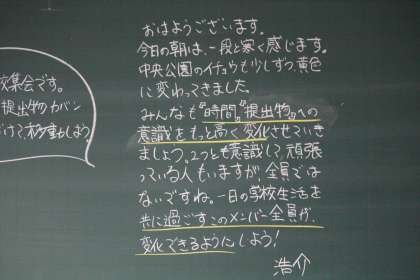 おはようございます。
今日の朝は、一段と寒く感じます。
中央公園のイチョウも少しずつ黄色
に変わってきました。
みんなも〝時間〟〝提出物〟への
意識をもっと高く変化させていき
ましょう。2つとも意識して頑張
っている人もいますが、全員では
ないですね。一日の学校生活を
共に過ごすこのメンバー全員が、
変化できるようにしよう!
浩介
集会です。
提出物カバン
けて移動しよう